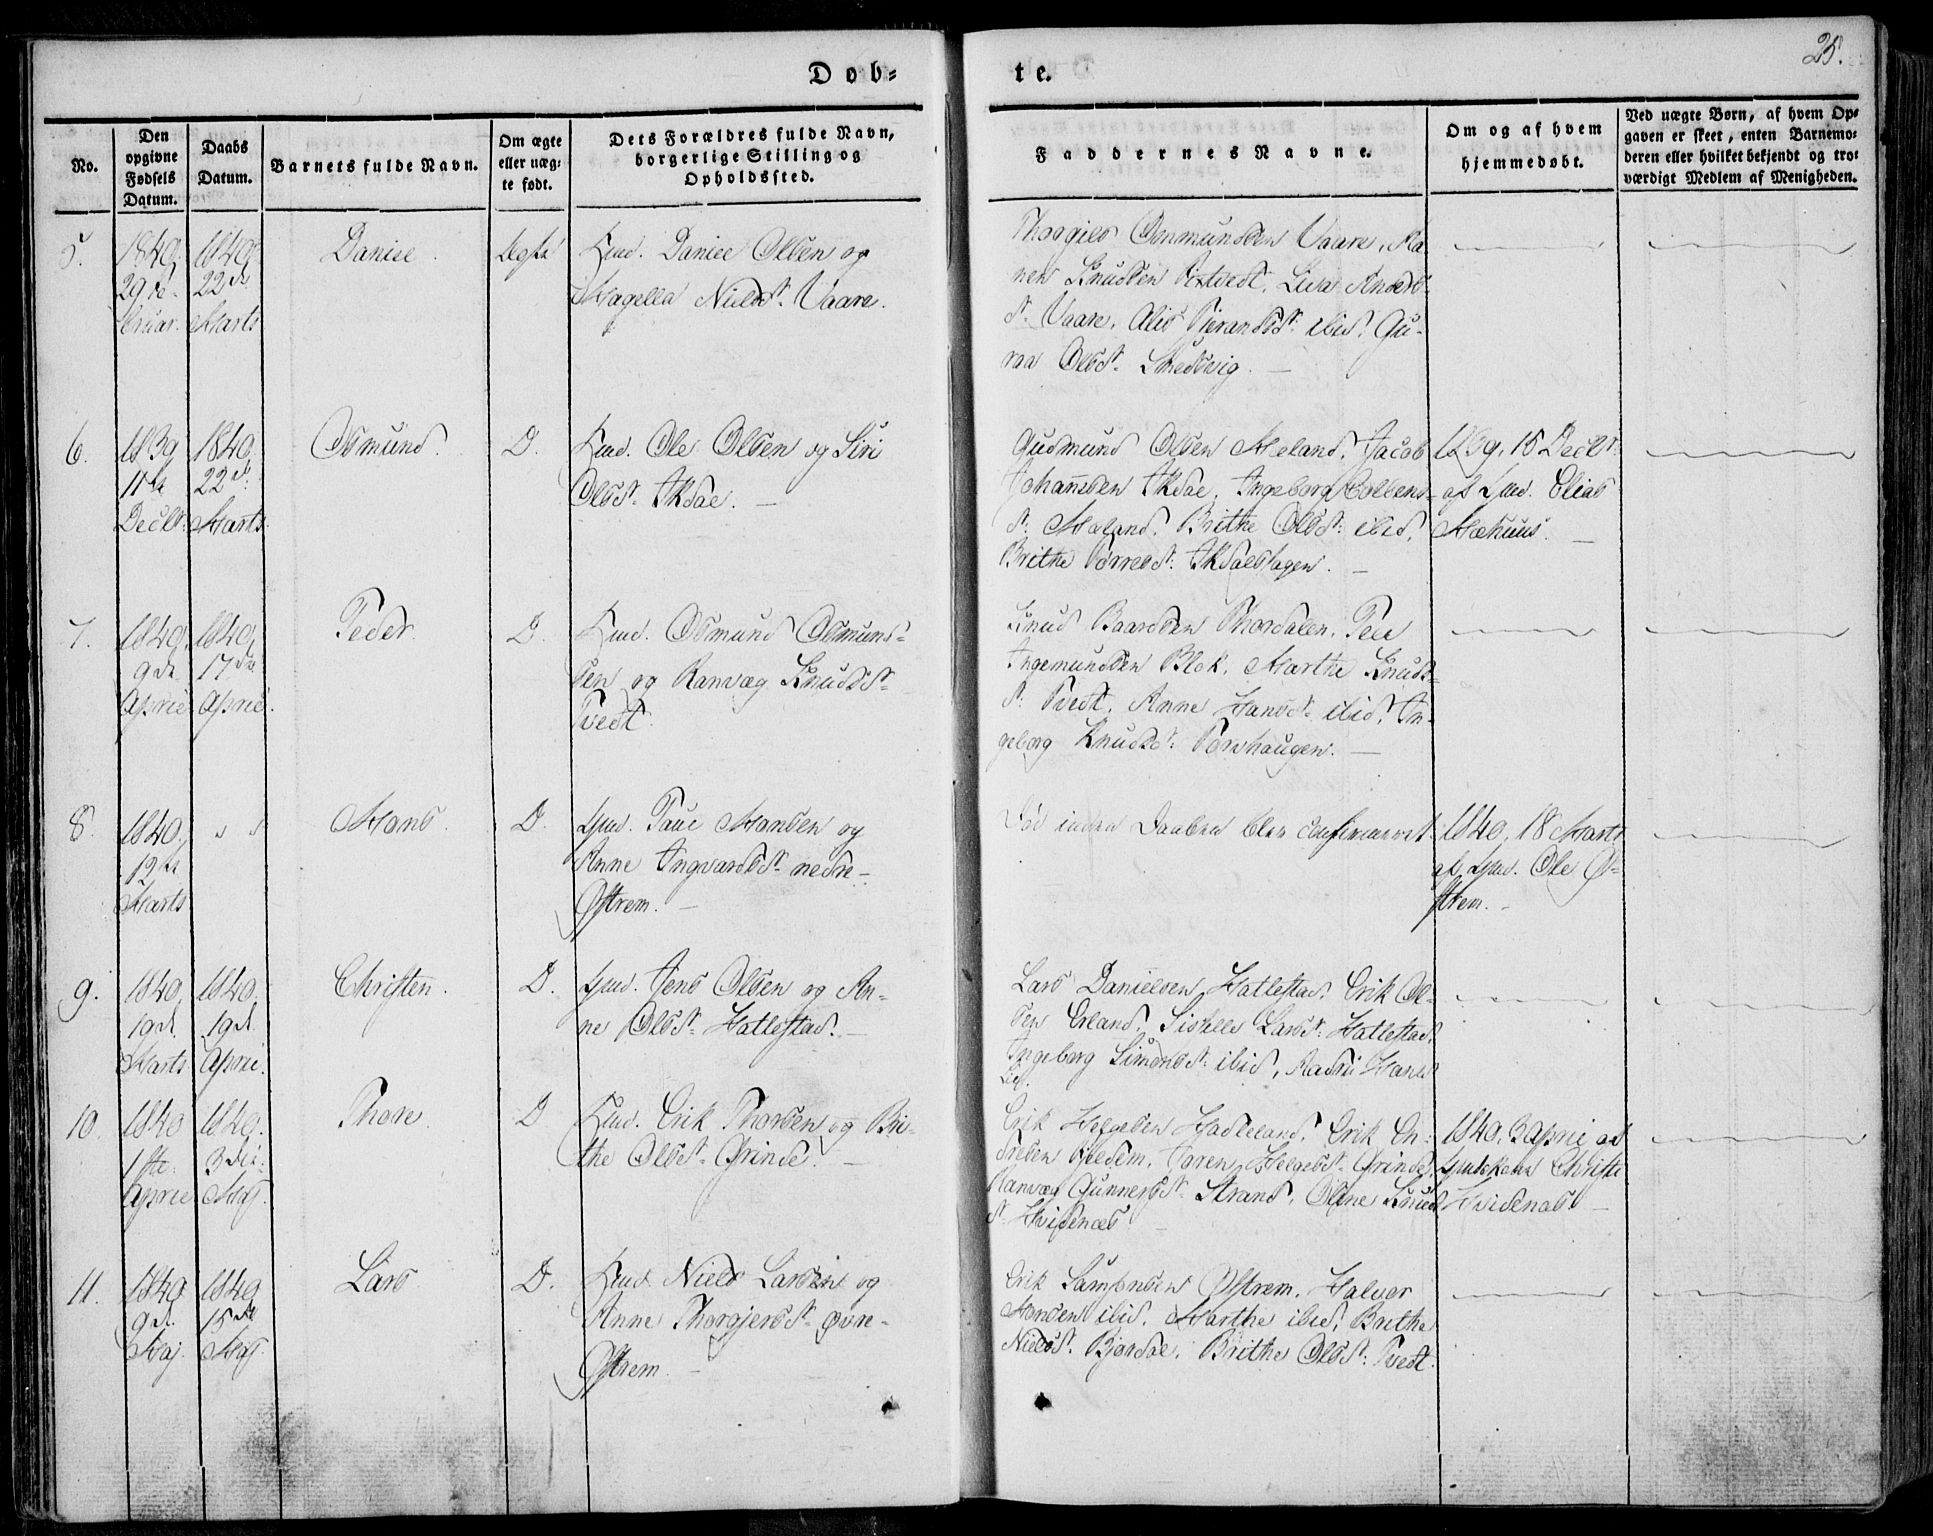 Døb-
te.
25.
No.
Den opgivne Fødsels Datum.
Daabs Datum.
Barnets fulde Navn.
Om ægte eller uæg-te født.
Dets Forældres fulde Navn, borgerlige Stilling og Opholdssted.
Faddernes Navne.
Om og af hvem hjemmedøbt.
Ved uægte Børn, af hvem Op-gaven er skeet, enten Barnemo-deren eller hvilket bekjendt og tro-værdigt Medlem af Menigheden.
5.
1840.
29 Fe-
bruar.
1840.
22de
Marts
Daniel.
Ægte
Gmd. Daniel Olsen og
Magella Nielsd. Vaare.
Osmundsen Vaare,
Knudsen Lisa Anders-
d. Vaare, ibid, Gu-
roe Olsd. Smedsvig.
6.
1839
11te
Decbr.
1840
22de
Marts
Osmund.
D.
Gmd. Ole Olsen og Siri
Olsd. Aksdal.
Gudmund Olsen Meland, Jacob
Johannsen Aksdal, Ingeborg
d. Meland, Brithe Olsd. ibid,
Brithe Tørresd. Aksdalshagen.
1839, 15 Decbr.
af Gmd. Elias
7.
1840,
9de
April
1840,
17de
April.
Peder.
D.
Gmd. Osmund Osmund-
sen og Ranvæg Knudsd.
Tvedt.
Knud Baardsen Thordalen, Peder
Ingemundsen Blek, Marthe Knuds-
d. Tvedt, Anne Hansd. ibid, In-
geborg Knudsd.
8.
1840.
12te
Marts
" "
Hans.
D.
Gmd. Paul Hansen og
Anne Ingvardsd. nedre
Østrem.
Død inden Daaben blev confirmeret.
1840, 18 Marts
af Gmd. Ole Ø-
strem.
9.
1840,
19de
Marts
1840,
19de
April.
Christen.
D.
Gmd. Jens Olsen og An-
ne Olsd. Hatlestad.
Lars Danielsen Hatlestad, Erik Ol-
sen Erland, Larsd. Hatlestad,
Ingeborg Simonsd. ibid,
10
1840
1ste
April
1840.
3die
Maj.
Thore
D
Gmd. Erik Thorsen og Bri-
the Olsd. Grinde.
Erik Helgesen Erik En-
dresen Helgesd. Grinde,
Ranvæg Gunnersd. Strand, Knuds
d. Hvidenæs
1840, 3 April af
Christi
Hvidenæs.
11.
1840
9de
Maj
1840
15de
Maj
Lars
D.
Gmd. Niels Larsen og
Anne Thorgjersd. øvre
Østrem.
Erik Samsonsen Østrem, Halvor
Hansen ibid, Marthe ibid, Brithe
Nielsd. Bjordal, Brithe Olsd. Tvedt.